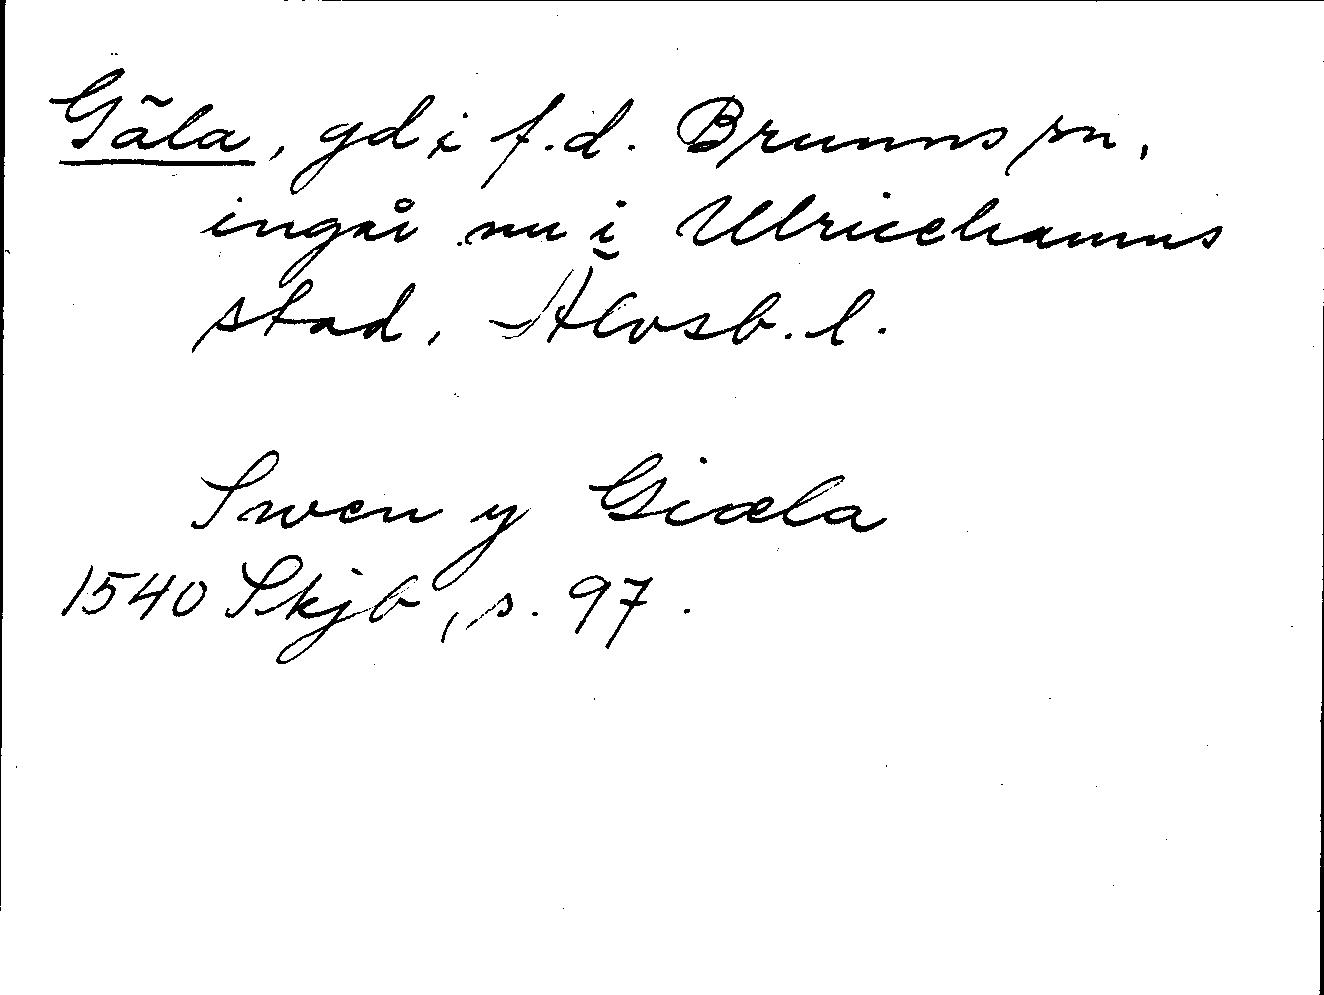 Gäla, gd i f.d. Brunns sn,
ingår nu i Ulricehamns
stad, Älvsb. l.
Swen y Giæla
1540 Skjb, s. 97.